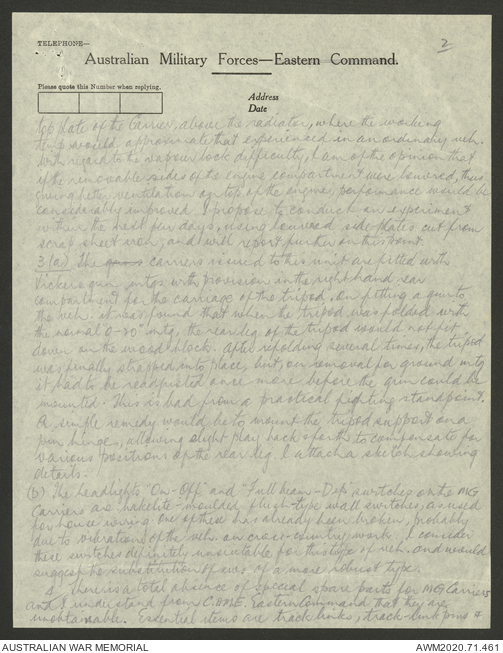 2
TELEPHONE—
Australian Military Forces—Eastern Command.
Please quote this Number when replying.
Address
Date
top plate of the Carrier, above the radiator, where the working
temp would approximate that experienced in an ordinary veh.
With regard to the vapour lock difficulty, I am of the opinion that
if the removable sides of the engine compartment were louvred, thus
giving better ventilation on top of the engine, performance would be
considerably improved. I propose to conduct an experiment
within the next few days, using louvred side plates cut from
scrap sheet iron, and will report further on this point.
3(a) The carriers issued to this unit are fitted with
Vickers gun mtgs with provision in the right hand rear
compartment for the carriage of the tripod. On fitting a gun to
the veh. it was found that when the tripod was folded with
the normal mtg, the rear leg of the tripod would not fit
down on the wood block. After refolding several times, the tripod
was finally strapped into place, but, on removal for ground mtg
it had to be readjusted once more before the gun could be
mounted. This is bad from a practical fighting standpoint.
A simple remedy would be to mount the tripod support on a
pin hinge, allowing slight play back & forth to compensate for
various positions of the rear leg. I attach a sketch showing
details.
(b) The headlights "On-Off" and "Full beam-Dip" switches on the MG
Carriers are bakelite-moulded, flush-type wall switches, as used
for house wiring. One of these has already been broken, probably
due to vibrations of the veh. on cross-country work. I consider
these switches definitely unsuitable for this type of veh. and would
suggest the substitution of sws. of a more robust type.
4. There is a total absence of special spare parts for MG Carriers
and I understand from Eastern Command that they are
unobtainable. Essential items are track links, track-link pins &
AUSTRALIAN WAR MEMORIAL
AWM2020.71.461